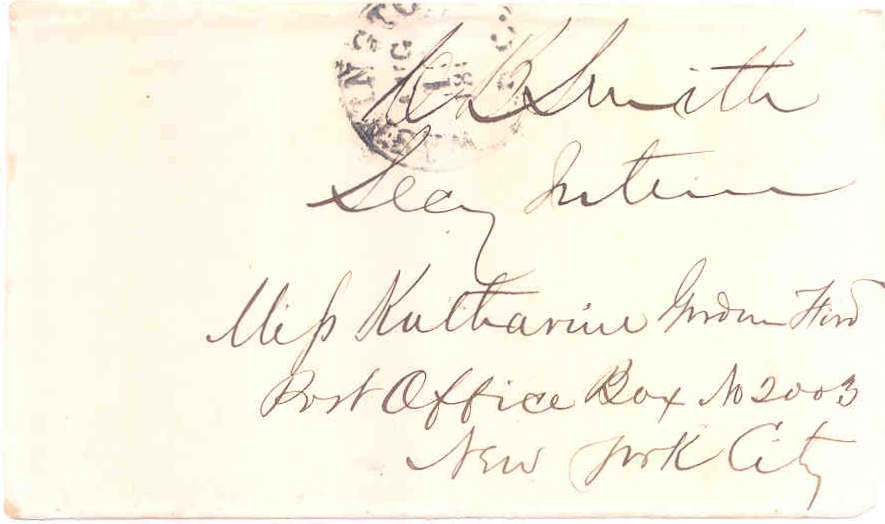 C B Smith
Secy Interior
Miss Katharine Gordon Ford
Post Office Box No 2003
New York City
AUG
1